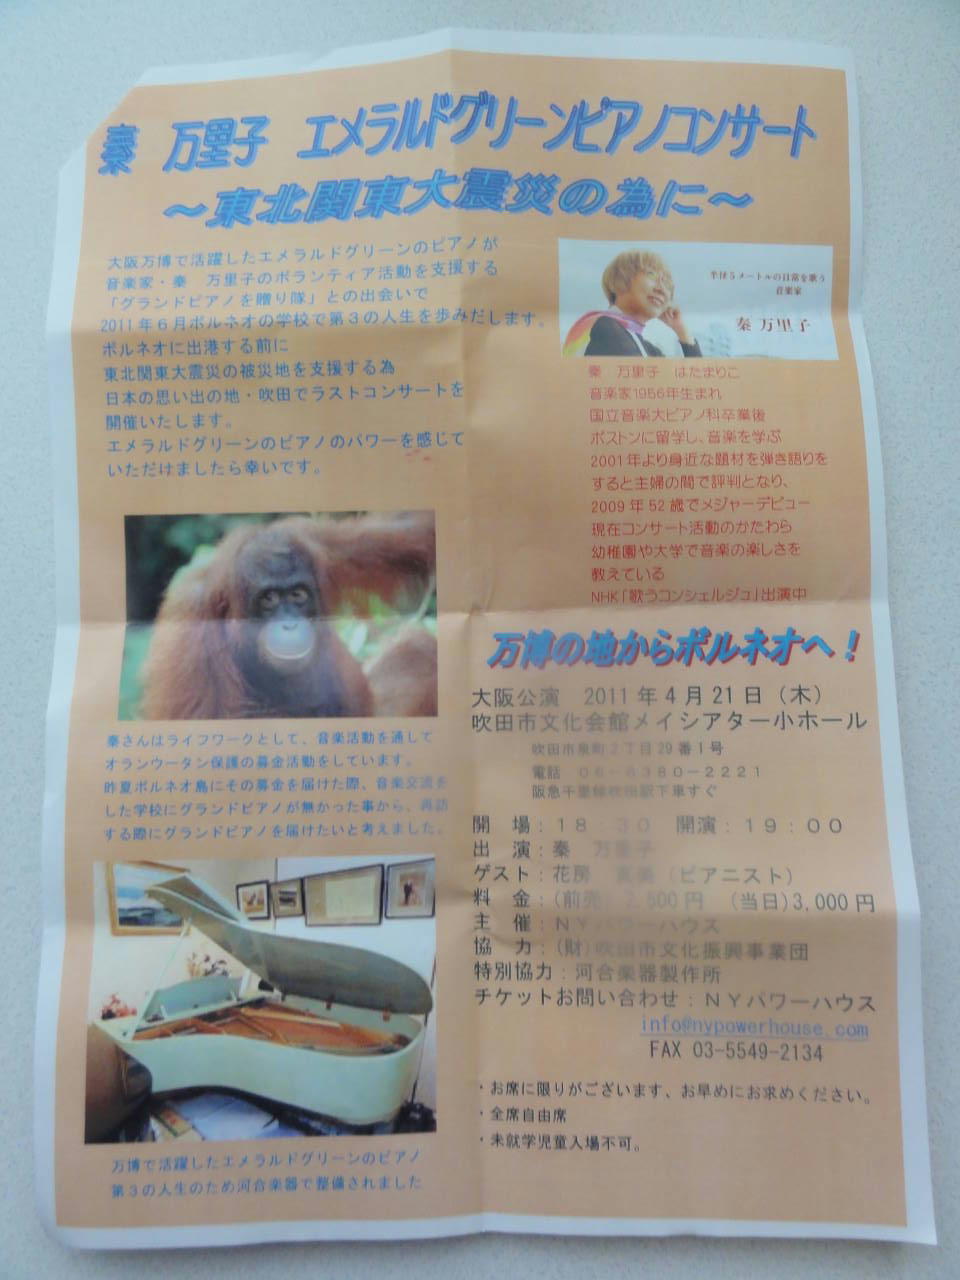 秦 万里子 エメラルドグリーンピアノコンサート
～東北関東大震災の為に～
大阪万博で活躍したエメラルドグリーンのピアノが
音楽家・秦 万里子のボランティア活動を支援する
「グランドピアノを贈り隊」との出会いで
2011年6月ボルネオの学校で第3の人生を歩みだします。
ボルネオに出港する前に
東北関東大震災の被災地を支援する為
日本の思い出の地・吹田でラストコンサートを
開催いたします。
エメラルドグリーンのピアノのパワーを感じて
いただけましたら幸いです。
半径5メートルの日常を歌う
音楽家
秦 万里子
秦 万里子 はたまりこ
音楽家1956年生まれ
国立音楽大ピアノ科卒業後
ボストンに留学し、音楽を学ぶ
2001年より身近な題材を弾き語りを
すると主婦の間で評判となり、
2009年52歳でメジャーデビュー
現在コンサート活動のかたわら
幼稚園や大学で音楽の楽しさを
教えている
NHK「歌うコンシェルジュ」出演中
秦さんはライフワークとして、音楽活動を通して
オランウータン保護の募金活動をしています。
昨夏ボルネオ島にその募金を届けた際、音楽交流を
した学校にグランドピアノが無かった事から、再訪
する際にグランドピアノを届けたいと考えました。
万博で活躍したエメラルドグリーンのピアノ
第3の人生のため河合楽器で整備されました
万博の地からボルネオへ！
大阪公演 2011年4月21日（木）
吹田市文化会館メイシアター小ホール
吹田市泉町2丁目29番1号
電話 06-6380-2221
阪急千里線吹田駅下車すぐ
開 場：18：30 開演：19：00
出 演：秦 万里子
ゲスト：花房 真美（ピアニスト）
料 金：(前売) 2,500円 (当日)3,000円
主 催：NYパワーハウス
協 力：(財)吹田市文化振興事業団
特別協力：河合楽器製作所
チケットお問い合わせ：NYパワーハウス
info@nypowerhouse.com
FAX 03-5549-2134
・お席に限りがございます、お早めにお求めください。
・全席自由席
・未就学児童入場不可。